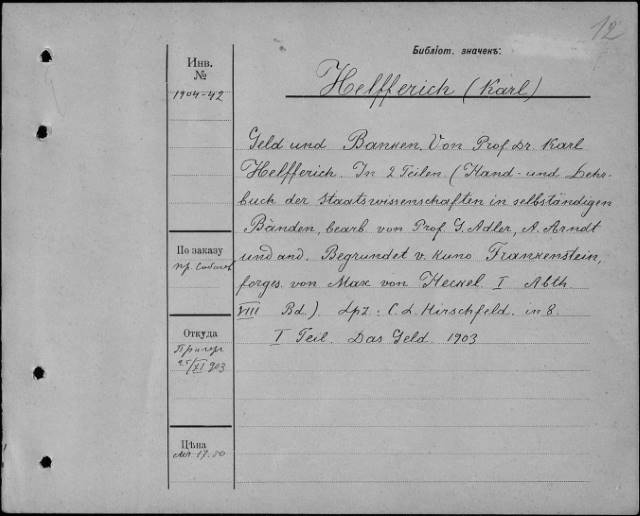 12
Библіот. значекъ:
Helfferich (Karl)
Инв.
№
1904-42
Geld und Banken. Von Prof. Dr. Karl
Helfferich. In 2 Teilen. (Hand- und Lehr-
buch der Staatswissenschaften in selbständigen
Bänden, bearb. von Prof. G. Adler, A. Arndt
und and. Begrundet v. Kuno Frankenstein,
forges. von Max von Heckel. I Abth.
VIII Bd.). Lpz: C. L. Hirschfeld. in 8.
I Teil. Das Geld. 1903
По заказу
пр.
Откуда
25/XI 903
Цѣна
17.50